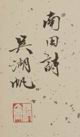 南田詩
吳湖帆